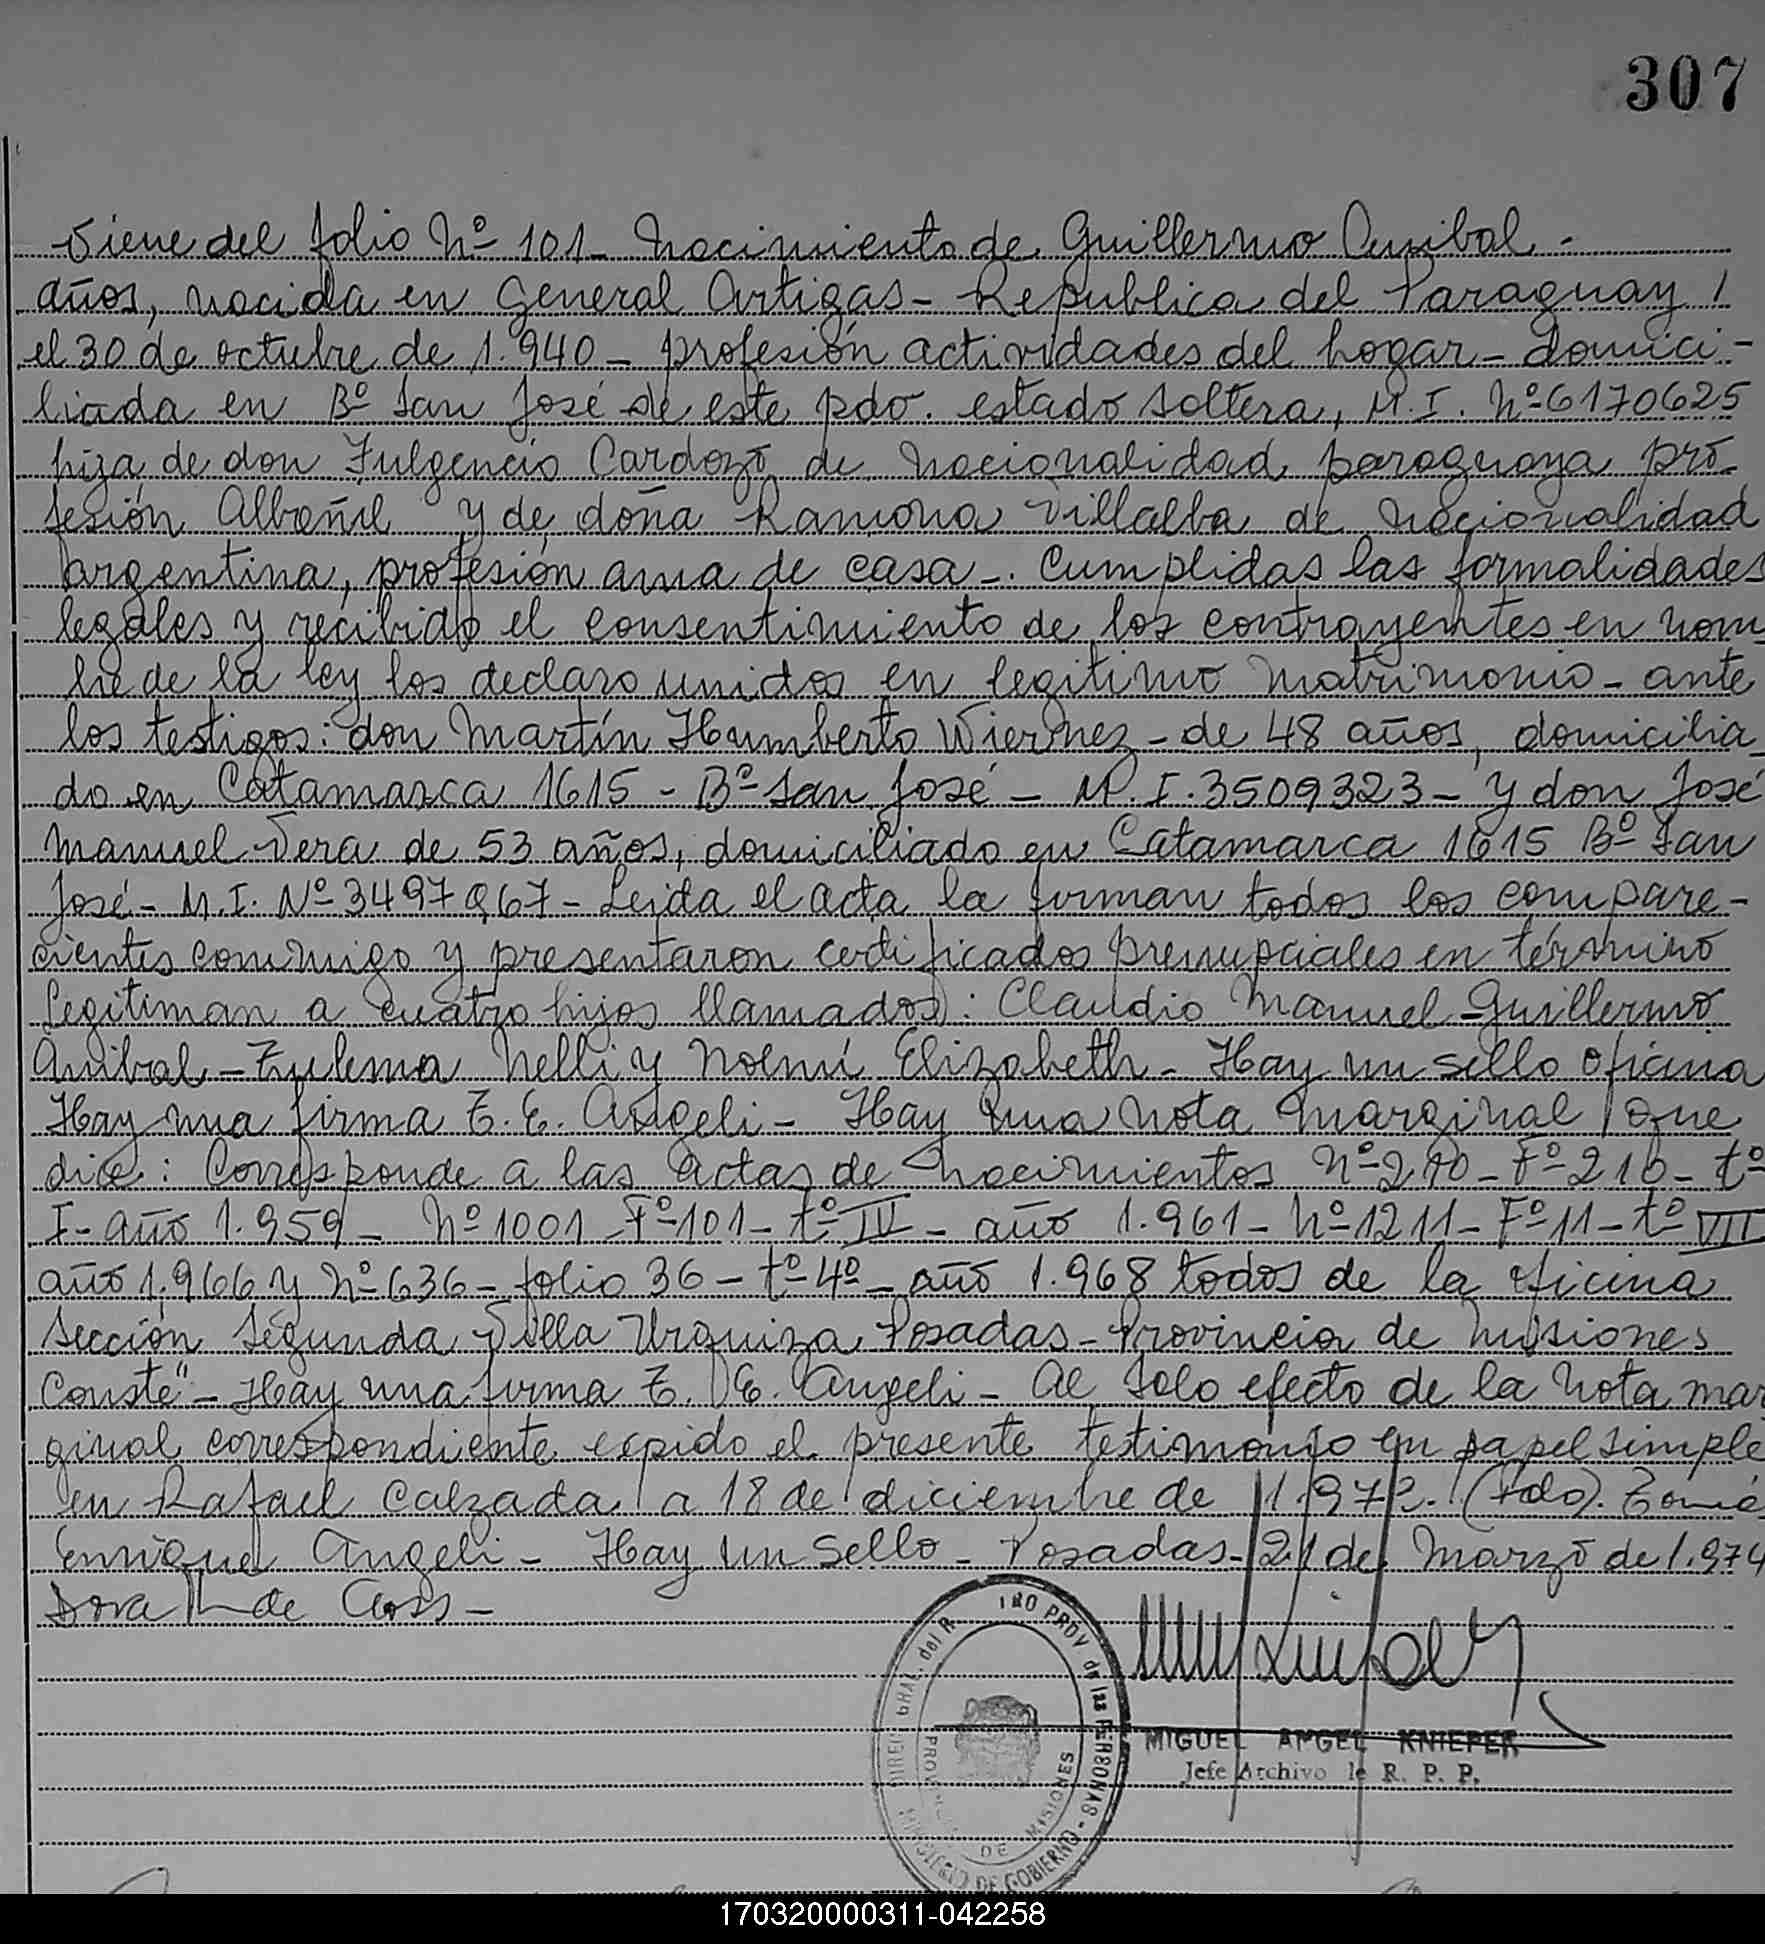 307
Viene del folio Nº 101 - Nacimiento de Guillermo Anibal -
años, nacida en General Artigas - Republica del Paraguay /
el 30 de octubre de 1.940 - profesión actividades del hogar - domici-
liada en Bº San José de este pdo. estado soltera, M.I. Nº 6170625
hija de don Fulgencio Cardozo de nacionalidad paraguaya pro-
fesión Albañil y de doña Ramona Villalba de nacionalidad
argentina, profesión ama de casa -. Cumplidas las formalidades
legales y recibido el consentimiento de los contrayentes en nom-
bre de la ley los declaro unidos en legitimo matrimonio - ante
los testigos: don Martín Humberto Wiernez - de 48 años, domicilia-
do en Catamarca 1615 - Bº San José - M.I. 3509323 - y don José
Manuel Vera de 53 años, domiciliado en Catamarca 1615 Bº San
José - M.I. Nº 3497967 - Leida el acta la firman todos los compare-
cientes conmigo y presentaron certificados prenupciales en término
Legitiman a cuatro hijos llamados: Claudio Manuel - Guillermo
Anibal - Zulema Nelli y Noemí Elizabeth - Hay un sello oficina
Hay una firma E. E. Angeli - Hay una nota marginal que
dice: Corresponde a las actas de nacimientos Nº 210 - Fº 210 - tº
I - año 1.959 - Nº 1001 Fº 101 - tº IV - año 1.961 - Nº 1211 - Fº 11 - tº VII
año 1.966 y Nº 636 - folio 36 - tº 4º - año 1.968 todos de la oficina
sección Segunda Villa Urquiza Posadas - Provincia de Misiones
Conste" - Hay una firma E. E. Angeli - Al solo efecto de la nota mar
ginal correspondiente expido el presente testimonio en papel simple
en Rafael Calzada a 18 de diciembre de 1.972. (Fdo).
Enrique Angeli - Hay un sello - Posadas - 21 de Marzo de 1.974
Dora de
DIREC. GRAL. del R PROV de las PERSONAS - MINISTERIO DE GOBIERNO
PROVINCIA DE MISIONES
MIGUEL ANGEL KNIEPER
Jefe Archivo de R. P. P.
170320000311-042258